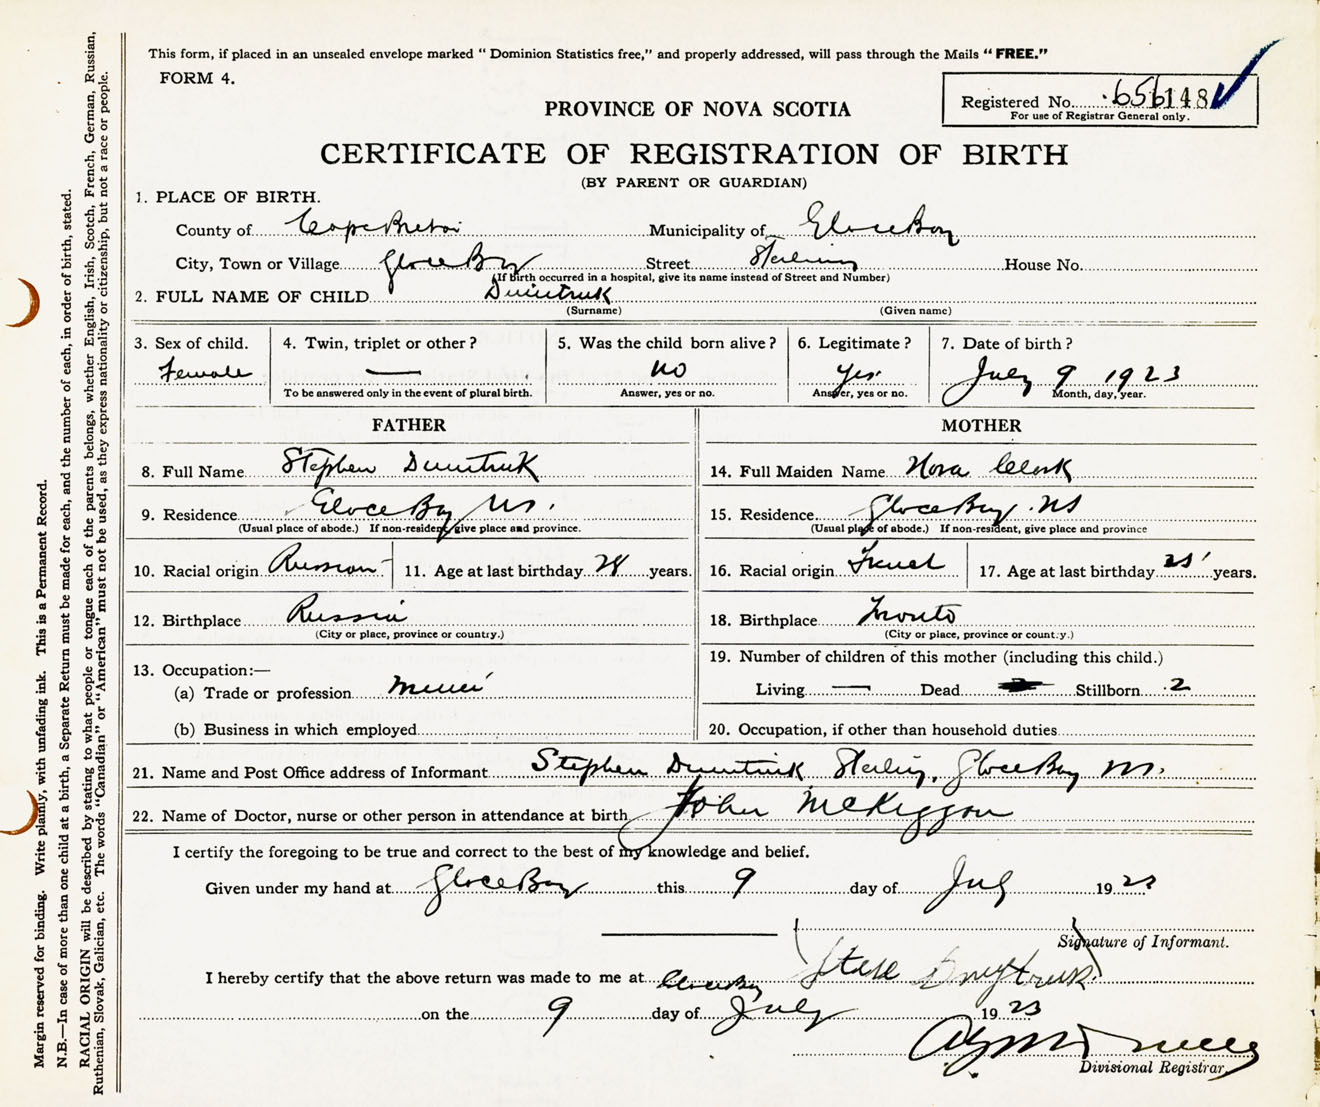 This form, if placed in an unsealed envelope marked "Dominion Statistics free," and properly addressed, will pass through the Mails "FREE."
FORM 4.
Registered No. 656148
For use of Registrar General only.
PROVINCE OF NOVA SCOTIA
CERTIFICATE OF REGISTRATION OF BIRTH
(BY PARENT OR GUARDIAN)
1. PLACE OF BIRTH.
County of Cape Breton Municipality of Glace Bay
City, Town or Village Glace Bay Street Sterling House No.
(If birth occurred in a hospital, give its name instead of Street and Number)
2. FULL NAME OF CHILD Dumtruk
(Surname) (Given name)
3. Sex of child. 4. Twin, triplet or other? 5. Was the child born alive? 6. Legitimate? 7. Date of birth?
Female — no yes July 9 1923
To be answered only in the event of plural birth. Answer, yes or no. Answer, yes or no. Month, day, year.
FATHER MOTHER
8. Full Name Stephen Dumtruk 14. Full Maiden Name Nora Clark
9. Residence Glace Bay NS. 15. Residence Glace Bay. NS
(Usual place of abode.) If non-resident, give place and province. (Usual place of abode.) If non-resident, give place and province
10. Racial origin Russian 11. Age at last birthday 28 years. 16. Racial origin French 17. Age at last birthday years.
12. Birthplace Russia 18. Birthplace
(City or place, province or country.) (City or place, province or country.)
13. Occupation:— 19. Number of children of this mother (including this child.)
(a) Trade or profession Miner Living — Dead Stillborn 2
(b) Business in which employed 20. Occupation, if other than household duties
21. Name and Post Office address of Informant Stephen Dumtruk Sterling, Glace Bay NS.
22. Name of Doctor, nurse or other person in attendance at birth John McKiggan
I certify the foregoing to be true and correct to the best of my knowledge and belief.
Given under my hand at Glace Bay this 9 day of July 1923
Signature of Informant.
I hereby certify that the above return was made to me at Glace Bay Steve Dmytruk
on the 9 day of July 1923
Divisional Registrar.
Margin reserved for binding. Write plainly, with unfading ink. This is a Permanent Record.
N.B.—In case of more than one child at a birth, a Separate Return must be made for each, and the number of each, in order of birth, stated.
RACIAL ORIGIN will be described by stating to what people or tongue each of the parents belongs, whether English, Irish, Scotch, French, German, Russian,
Ruthenian, Slovak, Galician, etc. The words "Canadian" or "American" must not be used, as they express nationality or citizenship, but not a race or people.